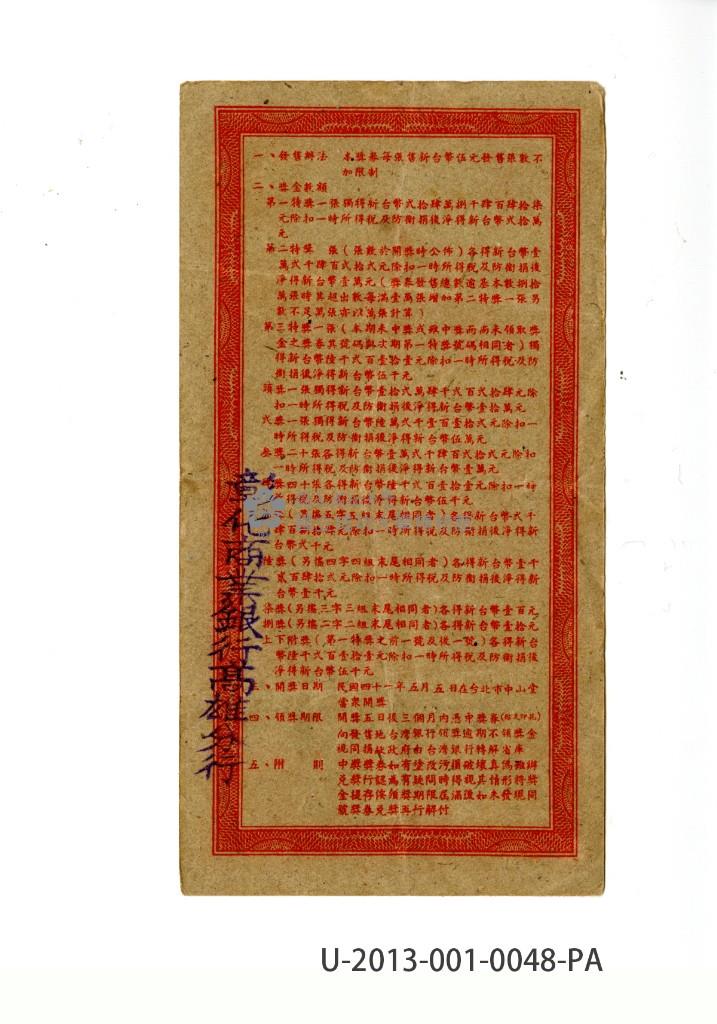 一、發售辦法 本獎券每張售新台幣伍元發售張數不
加限制
二、獎金數額
第一特獎一張獨得新台幣弍拾肆萬捌千肆百肆拾柒
元除扣一時所得稅及防衛捐後淨得新台幣弍拾萬
元
第二特獎 張(張數於開獎時公佈)各得新台幣壹
萬弍千肆百弍拾弍元除扣一時所得稅及防衛捐後
淨得新台幣壹萬元(獎券發售總數逾基本數捌拾
萬張時其超出數每滿壹萬張增加第二特獎一張另
數不足萬張亦以萬張計算)
第三特獎一張(本期未中獎或雖中獎而尚未領取獎
金之獎券其號碼與次期第一特獎號碼相同者)獨
得新台幣陸千弍百壹拾壹元除扣一時所得稅及防
衛捐後淨得新台幣伍千元
頭獎一張獨得新台幣壹拾弍萬肆千弍百弍拾肆元除
扣一時所得稅及防衛捐後淨得新台幣壹拾萬元
弍獎一張獨得新台幣陸萬弍千壹百壹拾弍元除扣一
時所得稅及防衛捐後淨得新台幣伍萬元
叁獎二十張各得新台幣壹萬弍千肆百弍拾弍元除扣
一時所得稅及防衛捐後淨得新台幣壹萬元
獎四十張各得新台幣陸千弍百壹拾壹元除扣一時
所得稅及防衛捐後淨得新台幣伍千元
(另搖五字五組末尾相同者)各得新台幣弍千
肆百捌拾肆元除扣一時所得稅及防衛捐後淨得新
台幣弍千元
陸獎(另搖四字四組末尾相同者)各得新台幣壹千
貳百肆拾弍元除扣一時所得稅及防衛捐後淨得新
台幣壹千元
柒獎(另搖三字三組末尾相同者)各得新台幣壹百元
捌獎(另搖二字二組末尾相同者)各得新台幣壹拾元
上下附獎(第一特獎之前一號及後一號)各得新台
幣陸千弍百壹拾壹元除扣一時所得稅及防衛捐後
淨得新台幣伍千元
三、開獎日期 民國四十一年五月五日在台北市中山堂
當眾開獎
四、領獎期限 開獎五日後三個月內憑中獎券
向發售地台灣銀行領獎逾期不領獎金
視同捐献政府由台灣銀行轉解省庫
五、附則 中獎獎券如有塗改污損破壞真偽難辦
兌獎行認為有疑問時得視其情形將獎
金提存俟領獎期限屆滿後如未發現同
號獎券兌獎再行解付
彰化商業銀行高雄分行
U-2013-001-0048-PA